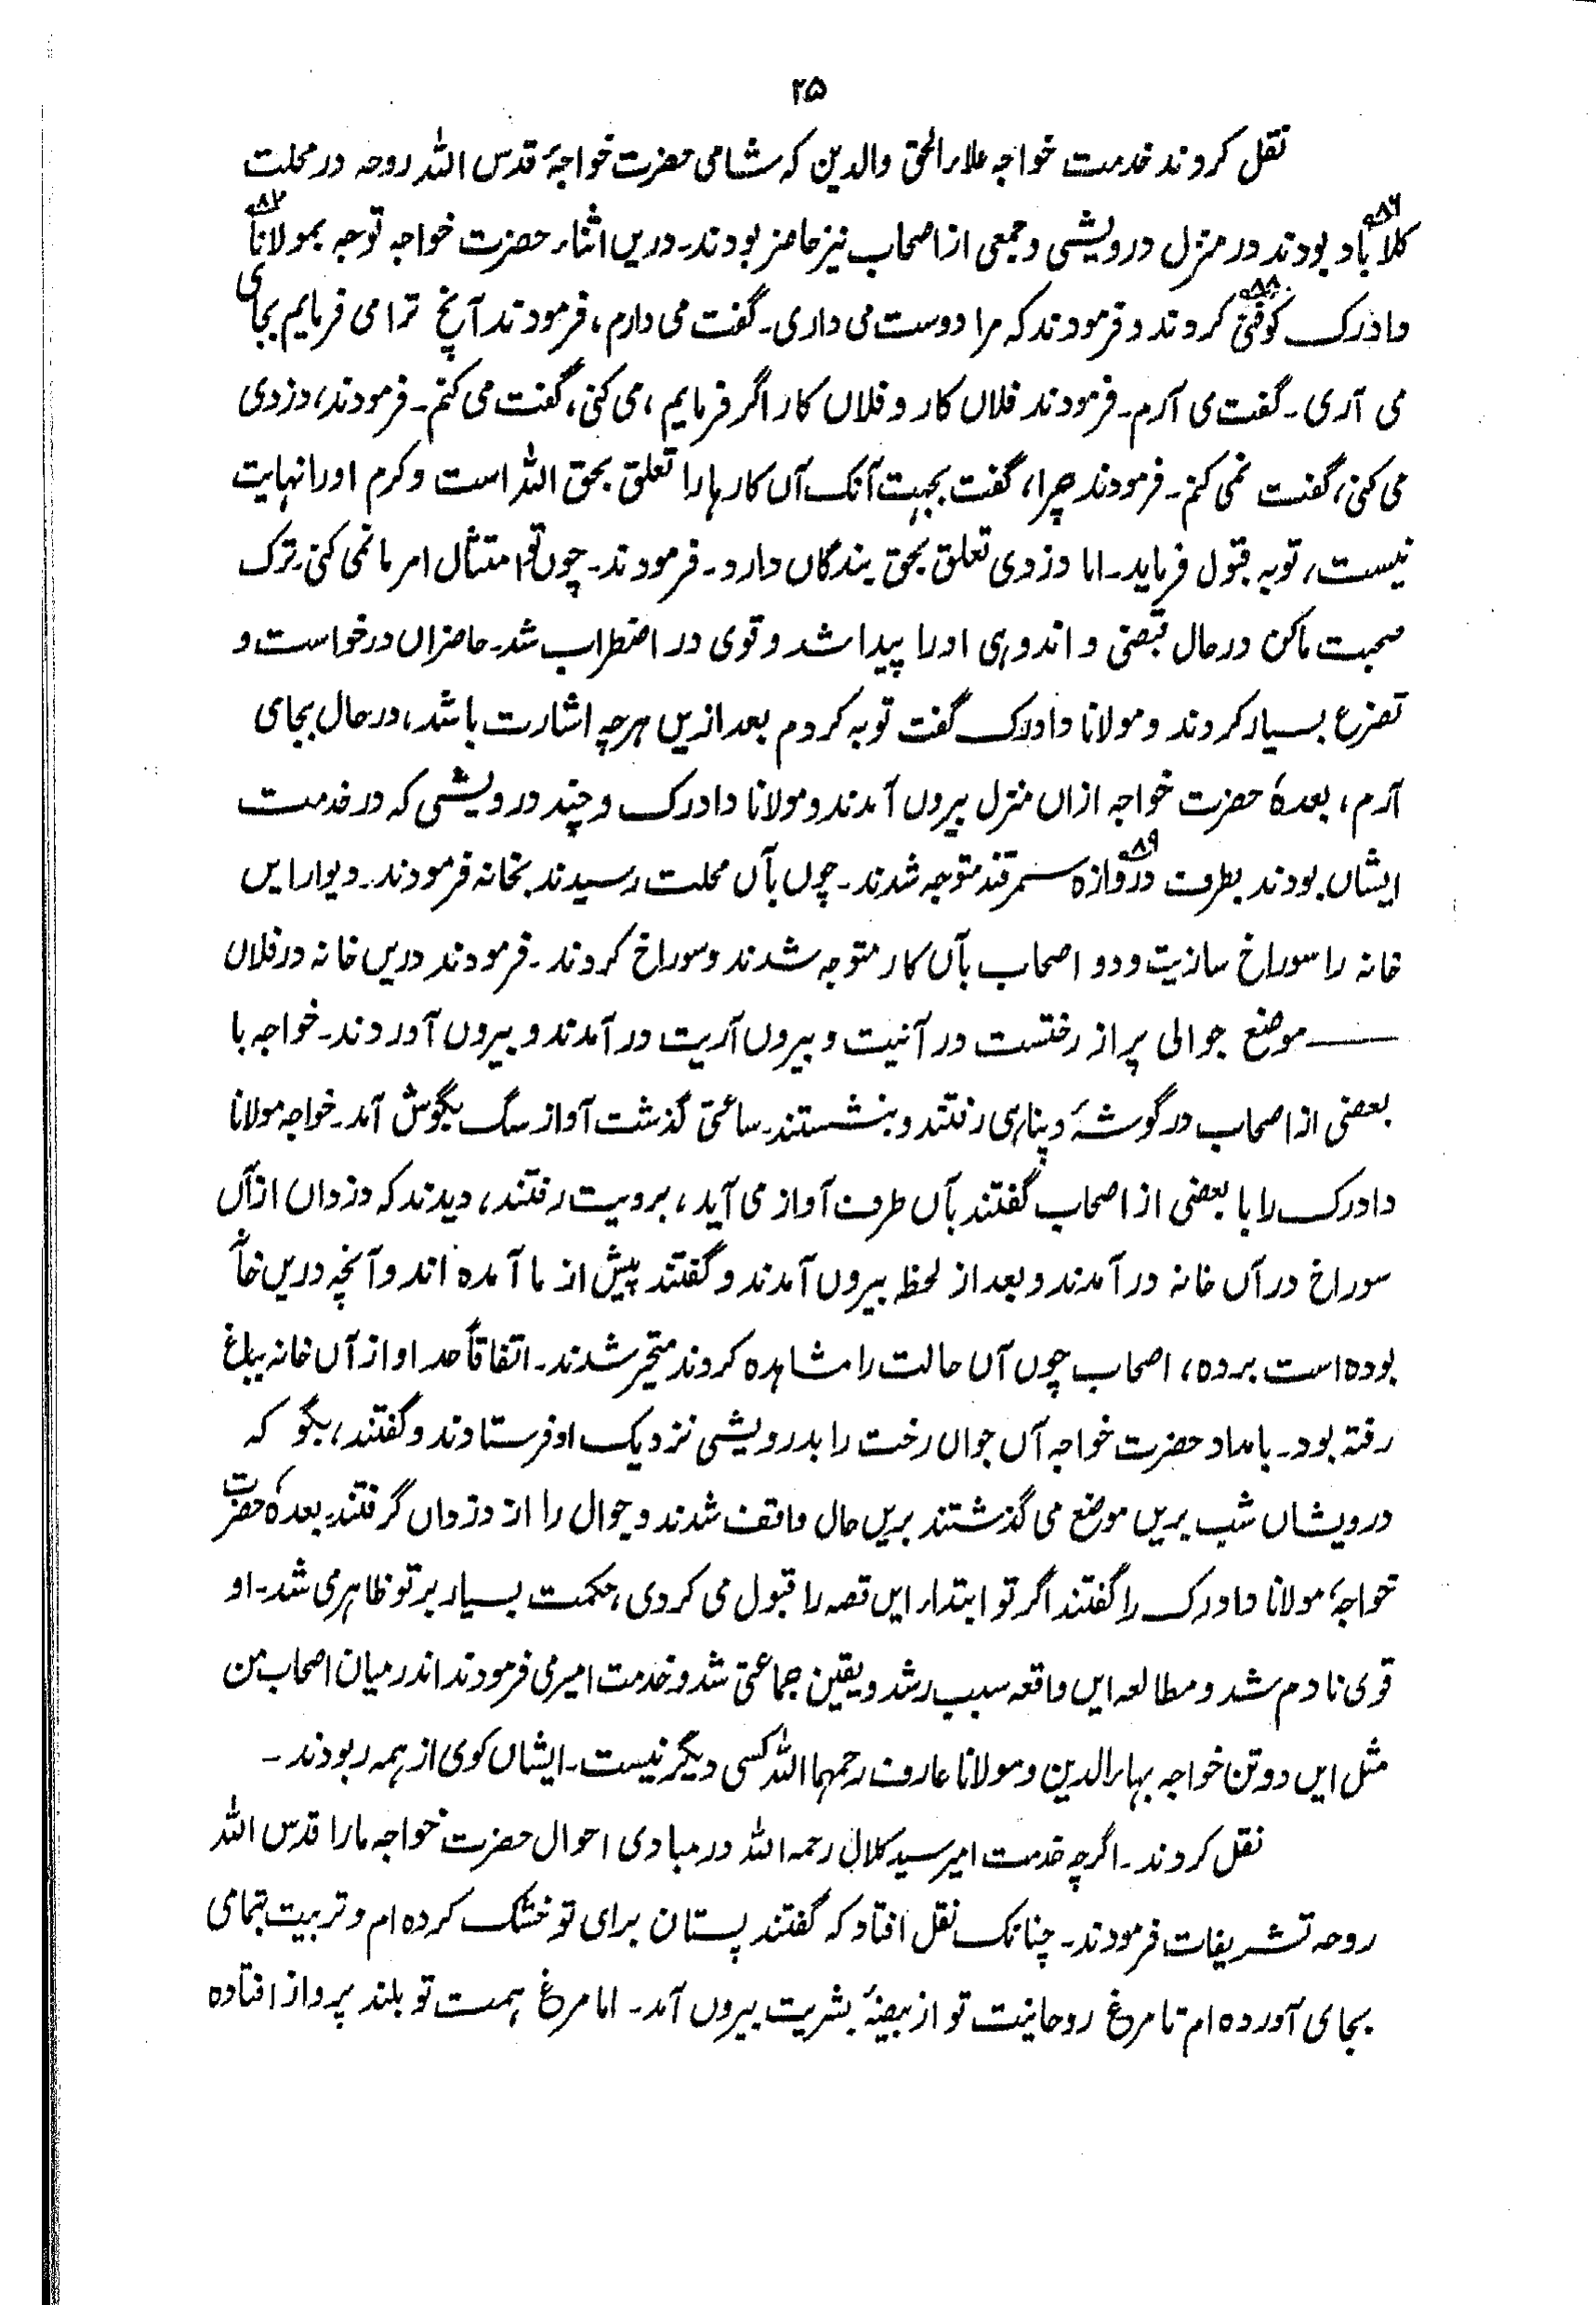 ۲۵
نقل کردند خدمت خواجه علاء الحق والدین که شامی حضرت خواجهٔ قدس الله روحه در محلت
کلا باد بودند در منزل درویشی و جمعی از اصحاب نیز حاضر بودند۔ دریں اثناء حضرت خواجه توجه بمولانا
دادرک کوفنی کردند و فرمودند که مرا دوست می داری۔ گفت می دارم، فرمودند آنچ ترا می فرمایم بجای
می آری۔ گفت ی آرم۔ فرمودند فلاں کار و فلاں کار اگر فرمایم، می کنی، گفت می کنم۔ فرمودند، دزدی
می کنی، گفت نمی کنم۔ فرمودند چرا، گفت بجهت آنک آں کارها را تعلق بحق الله است و کرم او را نهایت
نیست، توبه قبول فرماید۔ اما دزدی تعلق بحق بندگاں دارد۔ فرمودند۔ چوں تو امتثال امر ما نمی کنی۔ ترک
صحبت ماکن در حال قبضی و اندوهی او را پیدا شد و قوی در اضطراب شد۔ حاضراں درخواست و
تضرع بسیار کردند و مولانا دادرک گفت توبه کردم بعد ازیں هرچه اشارت باشد، در حال بجای
آرم، بعدهٗ حضرت خواجه ازاں منزل بیروں آمدند و مولانا دادرک و چند درویشی که در خدمت
ایشاں بودند بطرف دروازه سمرقند متوجه شدند۔ چوں بآں محلت رسیدند بخانه فرمودند۔ دیوار ایں
خانه را سوراخ سازیت و دو اصحاب بآں کار متوجه شدند و سوراخ کردند۔ فرمودند دریں خانه در فلاں
موضع جوالی پر از رختست در آئیت و بیروں آریت در آمدند و بیروں آوردند۔ خواجه با
بعضی از اصحاب در گوشهٔ و پناهی رفتند و بنشستند۔ ساعتی گذشت آواز سگ بگوش آمد۔ خواجه مولانا
دادرک را با بعضی از اصحاب گفتند بآں طرف آواز می آید، برویت رفتند، دیدند که دزداں از آں
سوراخ در آں خانه در آمدند و بعد از لحظه بیروں آمدند و گفتند پیش از ما آمده اند و آنچه دریں خانه
بوده است برده، اصحاب چوں آں حالت را مشاهده کردند متحیر شدند۔ اتفاقاً خداو از آں خانه بباغ
رفته بود۔ بامداد حضرت خواجه آں جوال رخت را بدرویشی نزدیک او فرستادند و گفتند، بگو که
درویشاں شب بریں موضع می گذشتند بریں حال واقف شدند و جوال را از دزداں گرفتند۔ بعدهٗ حضرت
خواجهٔ مولانا دادرک را گفتند اگر تو ابتداء ایں قصه را قبول می کردی، حکمت بسیار بر تو ظاهر می شد۔ او
قوی نادم شد و مطالعه ایں واقعه سبب رشد و یقین جماعتی شد و خدمت امیر می فرمودند اندر میان اصحاب من
مثل ایں دو تن خواجه بهاء الدین و مولانا عارف رحمهما الله کسی دیگر نیست۔ ایشاں کوی از همه ربودند۔
نقل کردند۔ اگرچه خدمت امیر سید کلال رحمه الله در مبادی احوال حضرت خواجه ما را قدس الله
روحه تشریفات فرمودند۔ چنانک نقل افتاد که گفتند پستان برای تو خشک کرده ام و تربیت بتمامی
بجای آورده ام تا مرغ روحانیت تو از بیضهٔ بشریت بیروں آمد۔ اما مرغ همت تو بلند پرواز افتاده